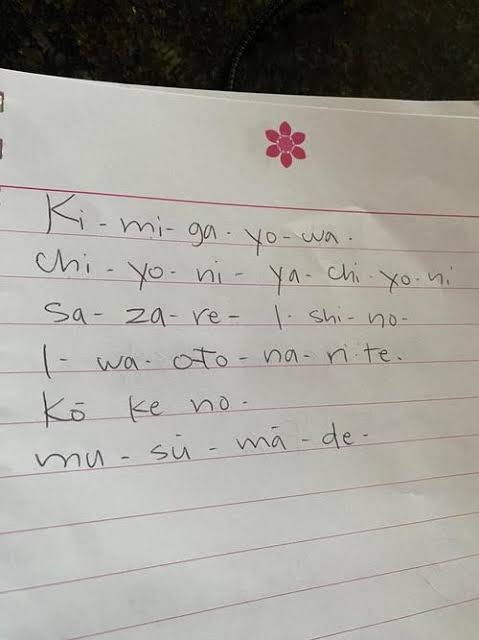 Ki - mi - ga - yo - wa.
Chi - yo - ni - ya - chi - yo - ni
Sa - za - re - I - shi - no -
I - wa - oto - na - ri - te.
Kō ke no -
mu - sū - mā - de -